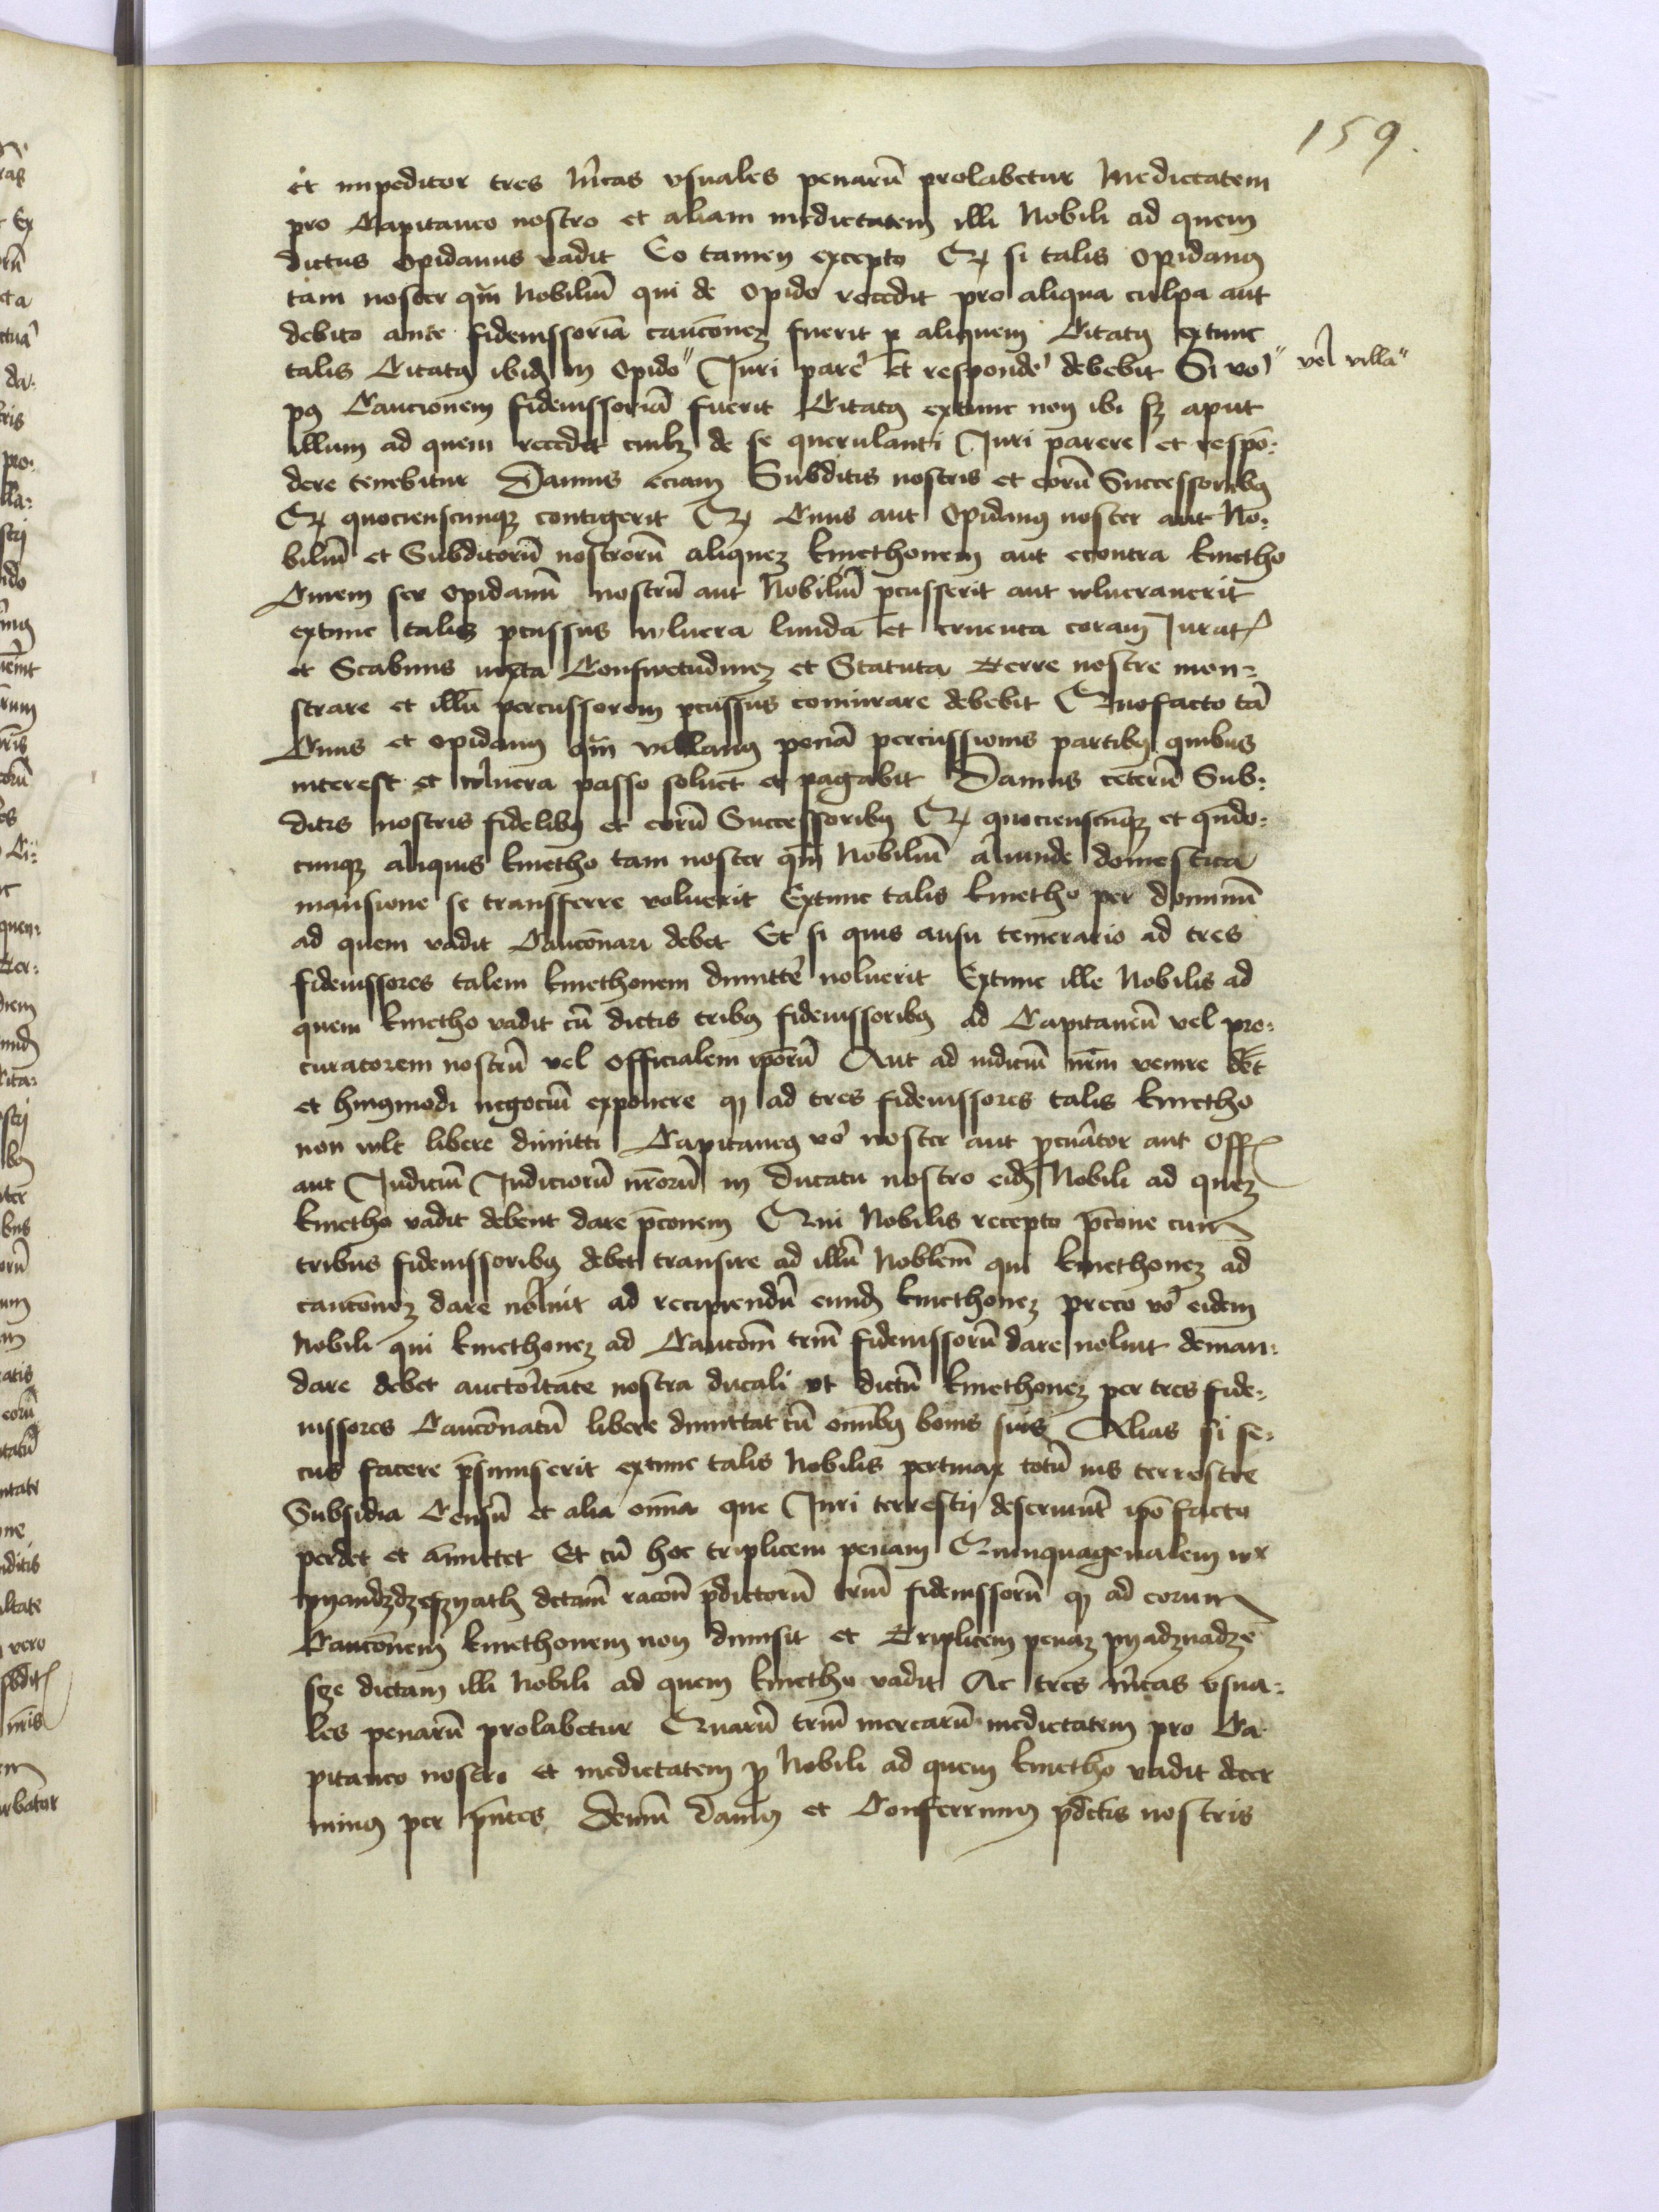 159.
et impeditor tres mrcas vsuales penarū prolabetur Medietatem
pro Capitaneo nostro et aliam medietatem illi Nobili ad quem
dictus opidanus vadit Eo tamen excepto Qꝫ si talis opidanꝰ
tam noster qm̄ Nobiliū qui de opido recedit pro aliqua culpa aut
debito ante fideiussoriā caucōneꝫ fuerit ꝑ aliquem Citatꝰ extunc
talis Citatꝰ ibidꝫ in opido" Juri parē et respondē debebit Si vo" vel villa"
pꝰ Caucionem fideiussoriā fuerit Citatꝰ extunc non ibi sꝫ aput
illum ad quem recedit cuilꝫ de se querulanti Juri parere et respō-
dere tenebitur Damus eciam Subditis nostris et eorū Successoribꝰ
Qꝫ quocienscunqꝫ contigerit Qꝫ Ciuis aut Opidanꝰ noster aut No-
biliū et Subditorū nostrorū aliqueꝫ kmethonem aut econtra kmetho
Ciuem seu opidanū nostrū aut Nobiliū ꝑcusserit aut wlnerauerit
extunc talis ꝑcussus wlnera liuida et cruenta coram Jurat
et Scabinis iuxta Consuetudineꝫ et Statuta Terre nostre mon-
strare et illū percussorem ꝑcussus coniurare debebit Quofacto tā
Ciuis et opidanꝰ qm̄ villanꝰ penā percussionis partibꝰ quibus
interest et wlnera passo soluet et pagabit Damus ceterū Sub-
ditis nostris fidelibꝰ et eorū Successoribꝰ Qꝫ quocienscūqꝫ et qn̄do-
cunqꝫ aliquis kmetho tam noster qm̄ Nobiliū aliunde domestica
mansione se transferre voluerit Extunc talis kmetho per dominū
ad quem vadit Caucōnari debet Et si quis ausu temerario ad tres
fideiussores talem kmethonem dimittē noluerit Extunc ille Nobilis ad
quem kmetho vadit cū dictis tribꝰ fideiussoribꝰ ad Capitaneū vel pro-
curatorem nostrū vel officialem ipōrū Aut ad iudiciū nrm̄ venire dēt
et hmoi̇modi negociū exponere qꝫ ad tres fideiussores talis kmetho
non wlt libere dimitti Capitaneꝰ vo noster aut ꝓcurātor aut Off
aut Judiciū Judiciorū nrōrū in ducatu nostro eidꝫ Nobili ad queꝫ
kmetho vadit debent dare p̄conem Qui Nobilis recepto p̄cone cum
tribus fideiussoribꝰ debet transire ad illū Nobilem̄ qui kmethoneꝫ ad
caucōneꝫ dare noluit ad recipiendū eundꝫ kmethoneꝫ preco vo eidem
Nobili qui kmethoneꝫ ad Caucōm̄ triū fideiussorū dare noluit deman-
dare debet auctoritate nostra ducali vt dictū kmethoneꝫ per tres fide-
iussores Caucōnatū libere dimittat cū omībꝰ bonis suis Alias si se-
cus facere p̄sumserit extunc talis Nobilis pertinax totū ius terrestre
Subsidia Censū et alia om̄ia que Juri terrestri deseruiūt ipō facto
perdet et amittet Et cū hoc triplicem penam Quinquagenalem wr
pyandzdzeszyath dictam̄ racōe p̄dictorū triū fideiussorū qꝫ ad eorum
Caucōnem kmethonem non dimisit et Triplicem penaꝫ pyadznadze
sze dictam illi Nobili ad quem kmetho vadit Ac tres mrcas vsua-
les penarū prolabetur Quarū triū mercarū medietatem pro Ca-
pitaneo nostro et medietatem ꝓ Nobili ad quem kmetho vadit decer
nimꝰ per pn̄tes Demū damꝰ et Conferrimꝰ p̄dictis nostris